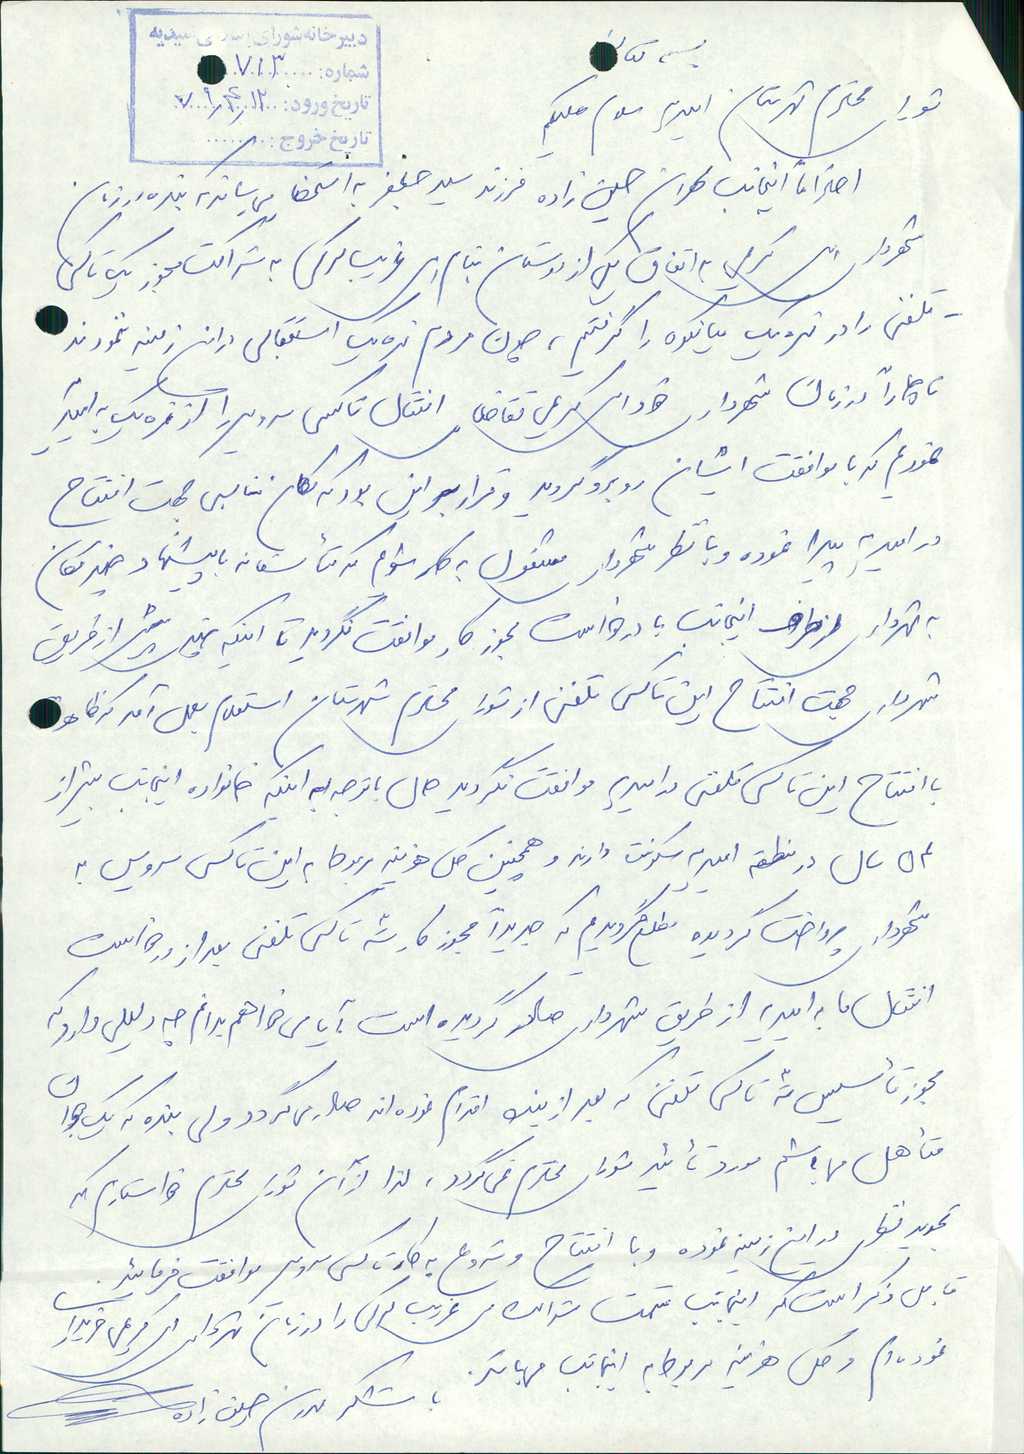 دبیرخانه شورای
شماره: ۷۱۳
تاریخ ورود: ۷۹/۴/۱۲
تاریخ خروج:
بسمه تعالی
شورای محترم شهرستان امیدیه سلام علیکم
احتراماً اینجانب حسین زاده فرزند سید جعفر به استحضار می‌رساند که بنده در زمان
شهردار آقای کرمی به اتفاق یکی از دوستان بنام آقای غریب به شراکت مجوز یک تاکسی
تلفنی را در میانکوه را گرفتیم، چون مردم استقبالی در این زمینه ننمودند
ناچاراً در زمان شهرداری آقای کریمی تقاضای انتقال تاکسی سرویس را از به امیدیه
نمودیم که با موافقت ایشان روبرو گردید و قرار بر این بود که مکان مناسبی جهت افتتاح
در امیدیه پیدا نموده و با نظر شهرداری مشغول به کار شوم که متأسفانه با پیشنهاد چندین مکان
به شهرداری از طرف اینجانب با درخواست مجوز کار موافقت نگردید تا اینکه از طریق
شهرداری جهت افتتاح این تاکسی تلفنی از شورای محترم شهرستان استعلام بعمل آمد که
با افتتاح این تاکسی تلفنی در امیدیه موافقت نگردید حال با توجه به اینکه خانواده اینجانب بیش از
سال در منطقه امیدیه سکونت دارند و همچنین کل هزینه مربوط به این تاکسی سرویس به
شهرداری پرداخت گردیده مطلع گردیدم که جدیداً مجوز کار سه تاکسی تلفنی بعد از درخواست
انتقال ما به امیدیه از طریق شهرداری صادر گردیده است آیا می‌خواهم بدانم چه دلیلی دارد که
مجوز تأسیس سه تاکسی تلفنی که بعد از بنده اقدام نموده‌اند صادر می‌گردد ولی بنده که یک جوان
متأهل میباشم مورد تأئید شورای محترم نمی‌گردد، لذا از آن شورای محترم خواستاریم که
تجدید نظری در این زمینه نموده و با افتتاح و شروع به کار تاکسی سرویس موافقت فرمائید.
قابل ذکر است که اینجانب قسمت شراکت غریب را در زمان شهرداری آقای کریمی خریداری
نموده‌ام و کل هزینه مربوط به اینجانب میباشد.
با تشکر حسین زاده